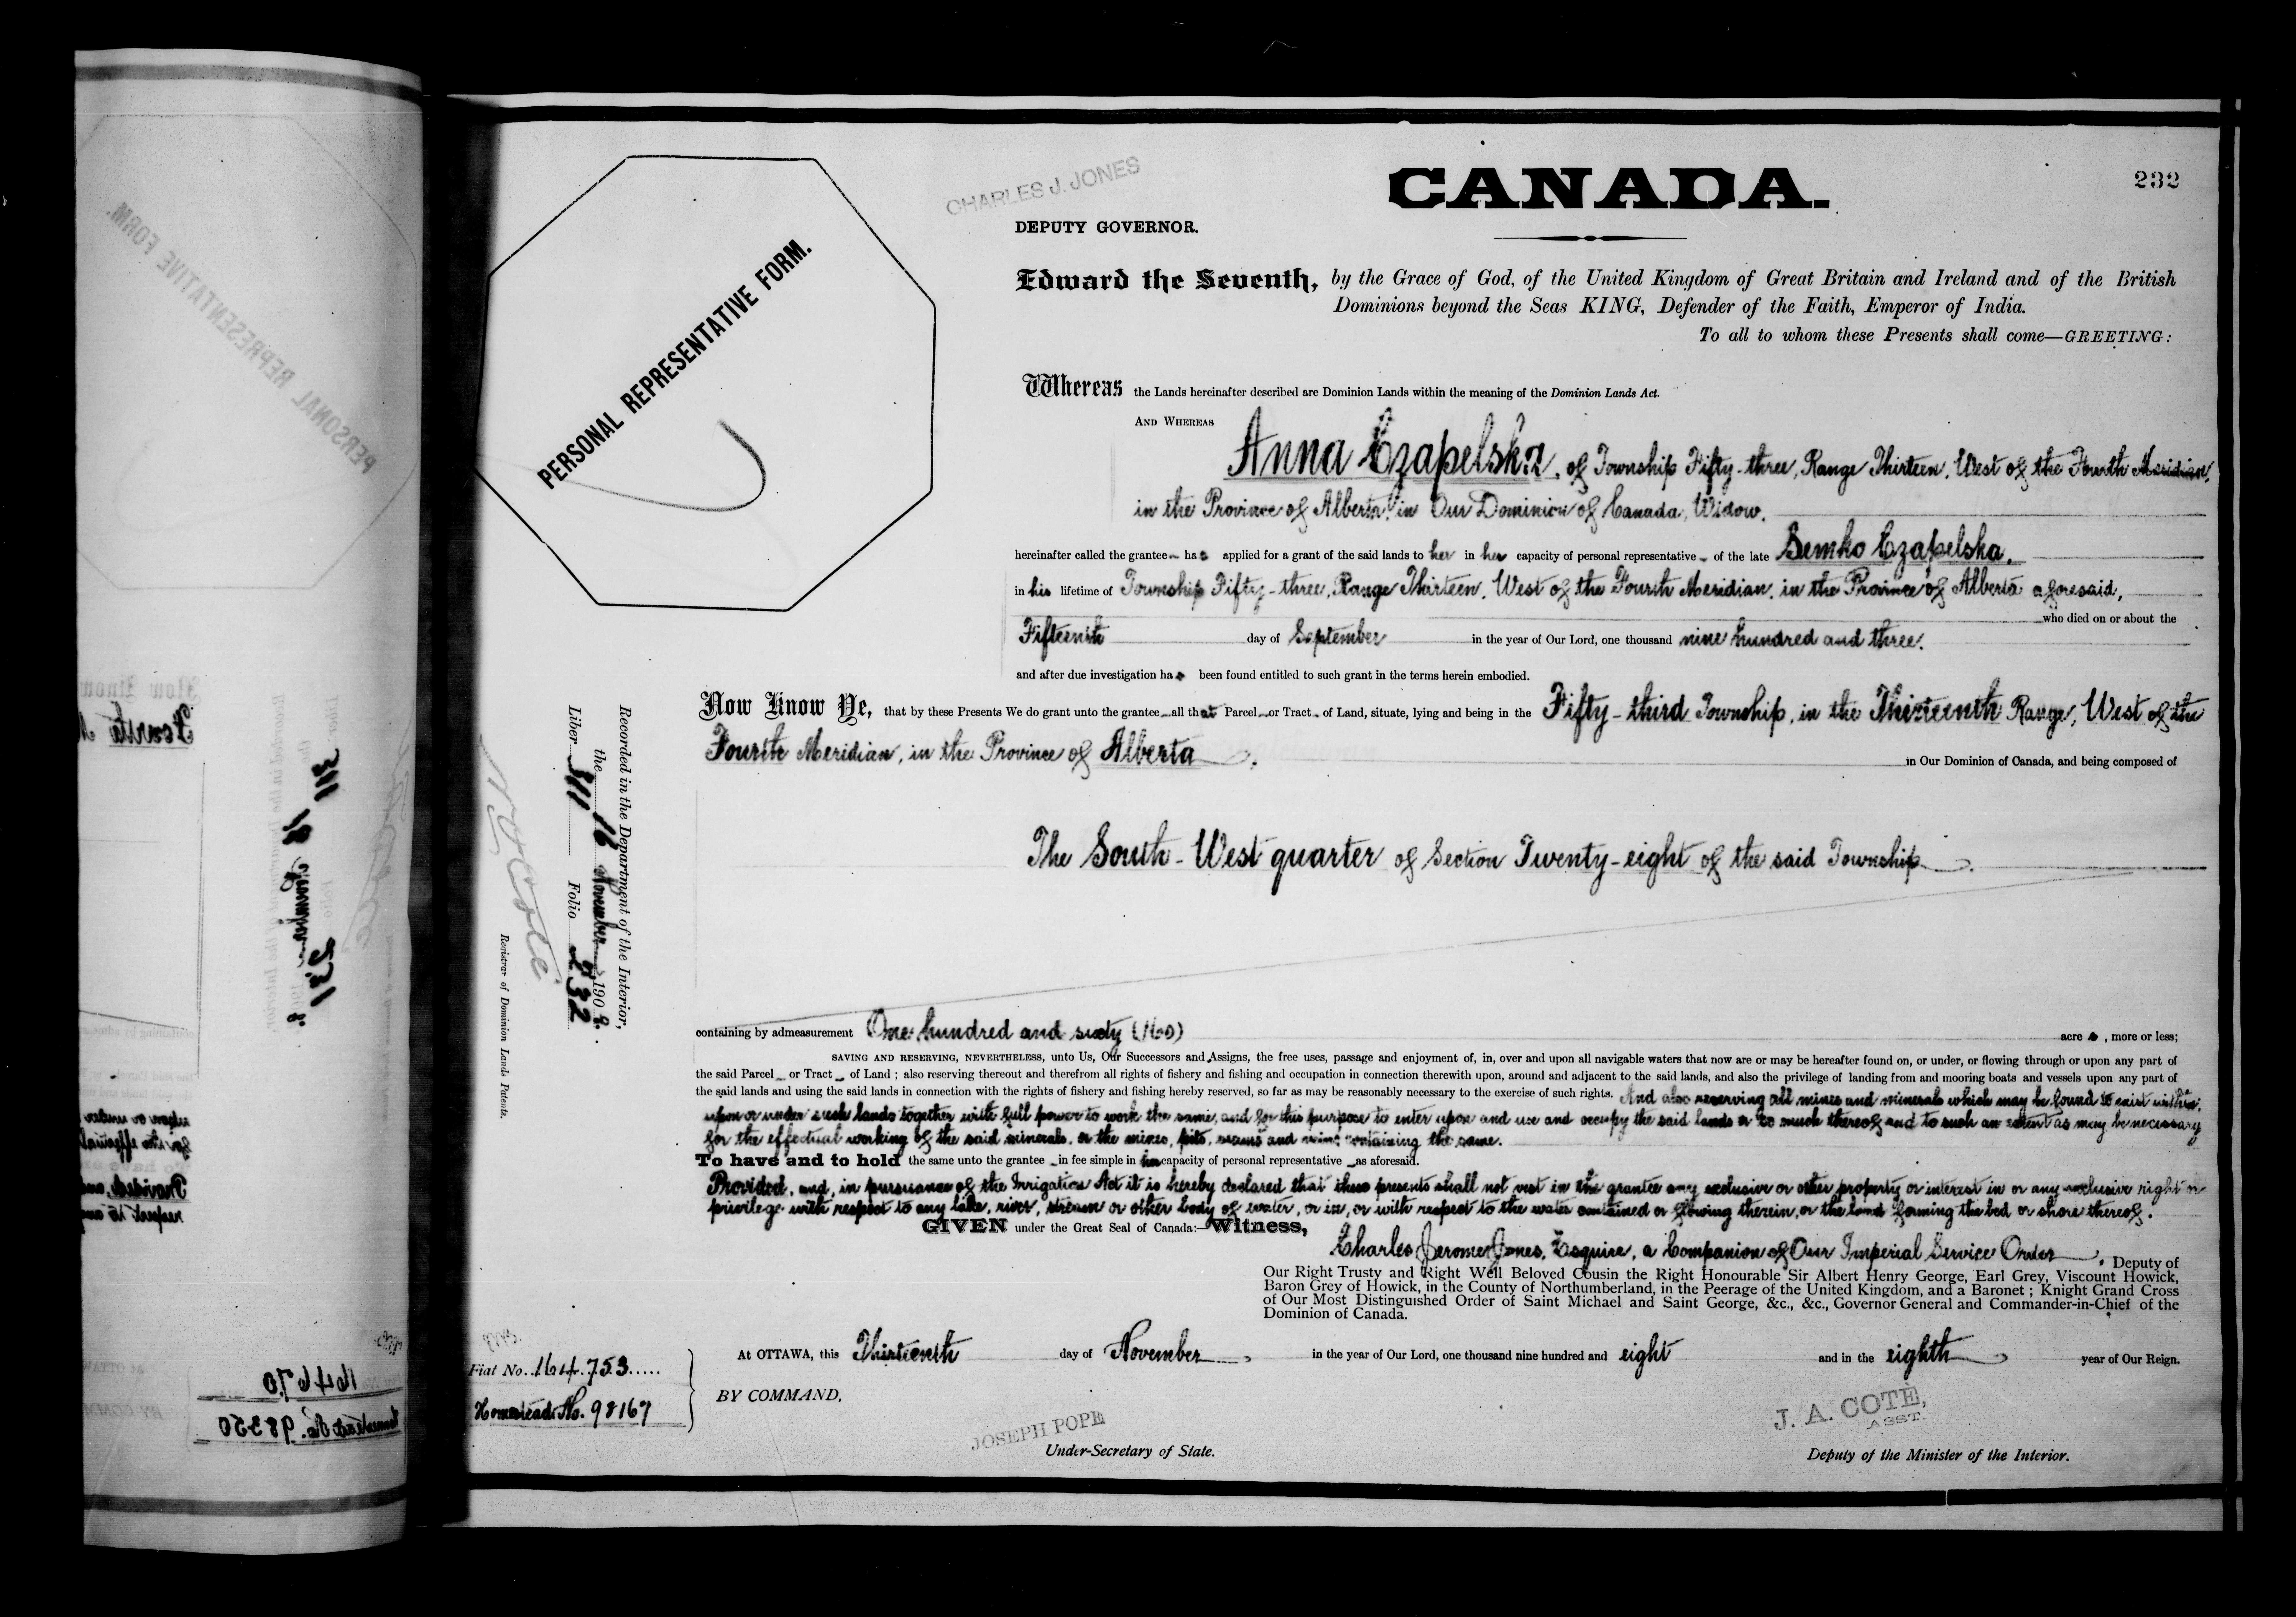 CHARLES J. JONES
CANADA.
232
DEPUTY GOVERNOR.
Edward the Seventh, by the Grace of God, of the United Kingdom of Great Britain and Ireland and of the British
Dominions beyond the Seas KING, Defender of the Faith, Emperor of India.
To all to whom these Presents shall come—GREETING:
PERSONAL REPRESENTATIVE FORM.
Whereas the Lands hereinafter described are Dominion Lands within the meaning of the Dominion Lands Act.
AND WHEREAS
Anna Czapelska, of Township Fifty-three, Range Thirteen, West of the Fourth Meridian,
in the Province of Alberta, in Our Dominion of Canada, Widow,
hereinafter called the grantee has applied for a grant of the said lands to her in her capacity of personal representative of the late Semko Czapelska,
in his lifetime of Township Fifty-three, Range Thirteen, West of the Fourth Meridian, in the Province of Alberta aforesaid,
who died on or about the
Fifteenth day of September in the year of Our Lord, one thousand nine hundred and three.
and after due investigation has been found entitled to such grant in the terms herein embodied.
Now Know Ye, that by these Presents We do grant unto the grantee all that Parcel or Tract of Land, situate, lying and being in the Fifty-third Township, in the Thirteenth Range, West of the
Fourth Meridian, in the Province of Alberta
in Our Dominion of Canada, and being composed of
Recorded in the Department of the Interior,
the 16 November 1908.
Liber 311 Folio 232
Registrar of Dominion Lands Patents.
The South-West quarter of Section Twenty-eight of the said Township
containing by admeasurement One hundred and sixty (160) acres, more or less;
SAVING AND RESERVING, NEVERTHELESS, unto Us, Our Successors and Assigns, the free uses, passage and enjoyment of, in, over and upon all navigable waters that now are or may be hereafter found on, or under, or flowing through or upon any part of
the said Parcel or Tract of Land; also reserving thereout and therefrom all rights of fishery and fishing and occupation in connection therewith upon, around and adjacent to the said lands, and also the privilege of landing from and mooring boats and vessels upon any part of
the said lands and using the said lands in connection with the rights of fishery and fishing hereby reserved, so far as may be reasonably necessary to the exercise of such rights. And also reserving all mines and minerals which may be found to exist within,
upon or under such lands together with full power to work the same, and for this purpose to enter upon and use and occupy the said lands or so much thereof and to such an extent as may be necessary
for the effectual working of the said minerals, or the mines, pits, seams and veins containing the same.
To have and to hold the same unto the grantee in fee simple in her capacity of personal representative as aforesaid.
Provided, and, in pursuance of the Irrigation Act it is hereby declared that these presents shall not vest in the grantee any exclusive or other property or interest in or any exclusive right or
privilege with respect to any lake, river, stream or other body of water, or in, or with respect to the water contained or flowing therein, or the land forming the bed or shore thereof.
GIVEN under the Great Seal of Canada:—Witness,
Charles Jerome Jones, Esquire, a Companion of Our Imperial Service Order, Deputy of
Our Right Trusty and Right Well Beloved Cousin the Right Honourable Sir Albert Henry George, Earl Grey, Viscount Howick,
Baron Grey of Howick, in the County of Northumberland, in the Peerage of the United Kingdom, and a Baronet; Knight Grand Cross
of Our Most Distinguished Order of Saint Michael and Saint George, &c., &c., Governor General and Commander-in-Chief of the
Dominion of Canada.
At OTTAWA, this Thirteenth day of November in the year of Our Lord, one thousand nine hundred and eight and in the eighth year of Our Reign.
Fiat No. 164753
Homestead No. 98167
BY COMMAND,
JOSEPH POPE
Under-Secretary of State.
J. A. COTÉ,
ASST.
Deputy of the Minister of the Interior.
PERSONAL REPRESENTATIVE FORM.
164670
Homestead No. 98350